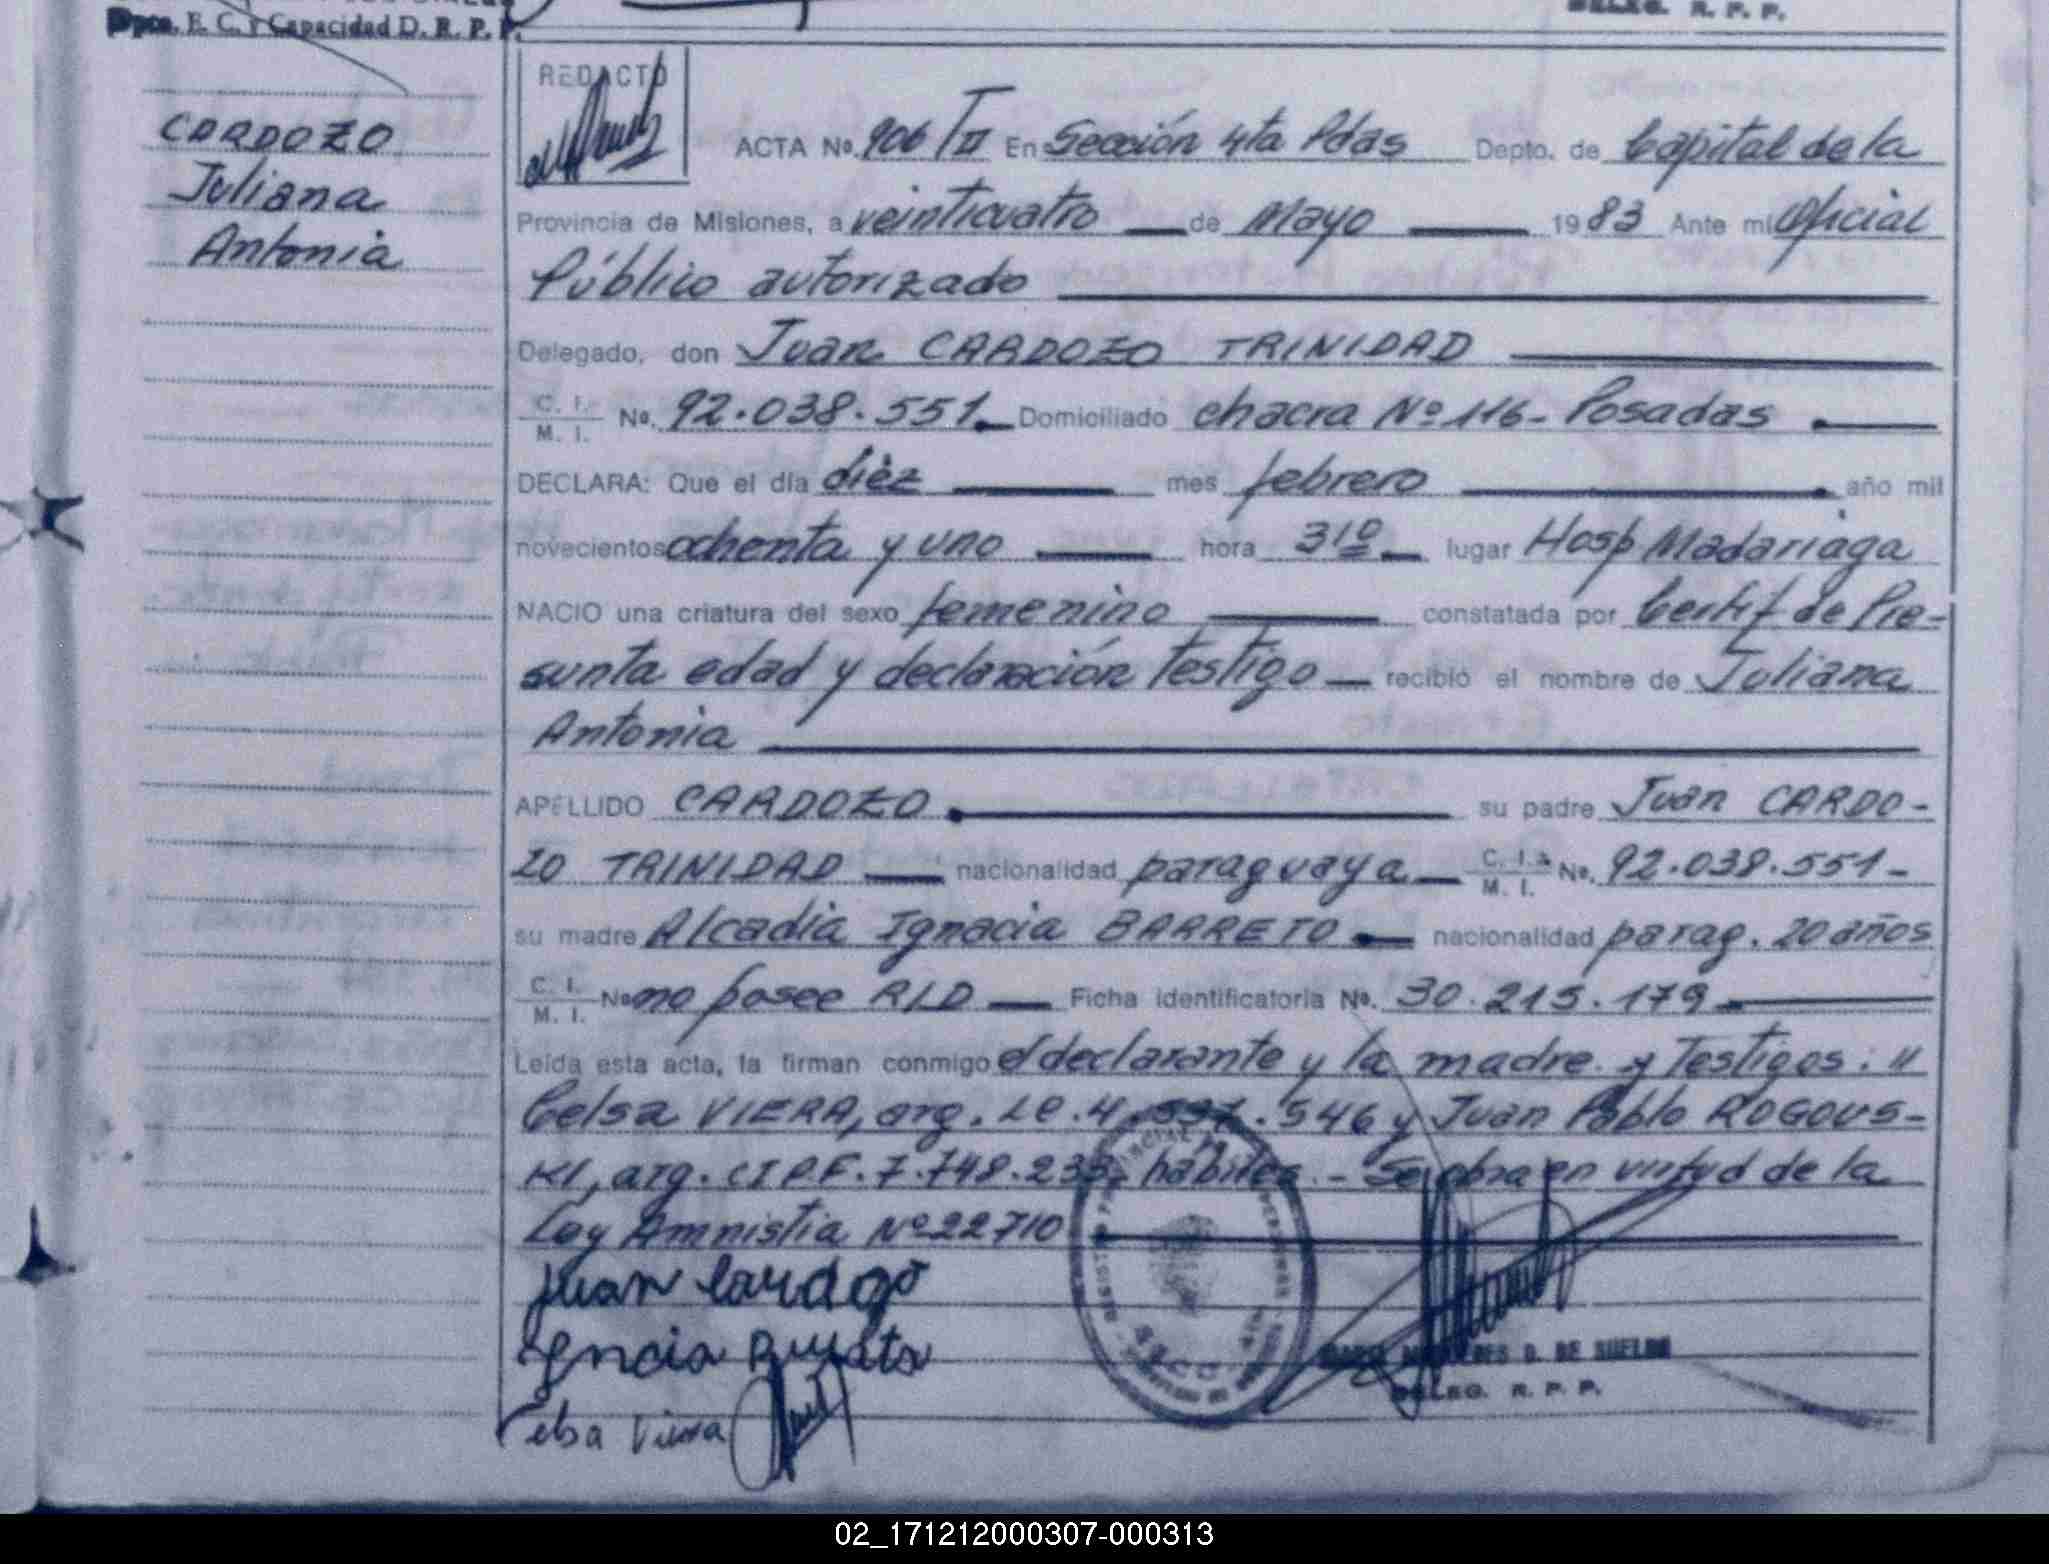 Dpto. E. C. y Capacidad D. R. P. P.
DELEG. R. P. P.
CARDOZO
Juliana
Antonia
REDACTO
ACTA Nº. 906/II En Sección 4ta Pdas Depto. de Capital de la
Provincia de Misiones, a veinticuatro de Mayo 1983 Ante mi Oficial
Público autorizado
Delegado, don Juan CARDOZO TRINIDAD
C. I. M. I. Nº. 92.038.551. Domiciliado chacra Nº 116 - Posadas
DECLARA: Que el día diéz mes febrero año mil
novecientos ochenta y uno hora 3 10 lugar Hosp Madariaga
NACIO una criatura del sexo femenino constatada por Certif de Pre-
sunta edad y declaración testigo recibió el nombre de Juliana
Antonia
APELLIDO CARDOZO su padre Juan CARDO-
ZO TRINIDAD nacionalidad paraguaya C. I. M. I. Nº. 92.038.551-
su madre Alcadia Ignacia BARRETO nacionalidad parag. 20 años
C. I. M. I. Nº no posee RID Ficha identificatoria Nº. 30.215.179
Leída esta acta, la firman conmigo el declarante y la madre y Testigos: "
Celsa VIERA, arg. LC. 4. .546 y Juan Pablo ROGOUS-
KI, arg. CI P.F. 7.748.233, hábiles. - Se obra en virtud de la
Ley Amnistia Nº 22710
Juan Cardozo
Celsa Viera
D. DE SUELDO
DELEG. R. P. P.
02_171212000307-000313